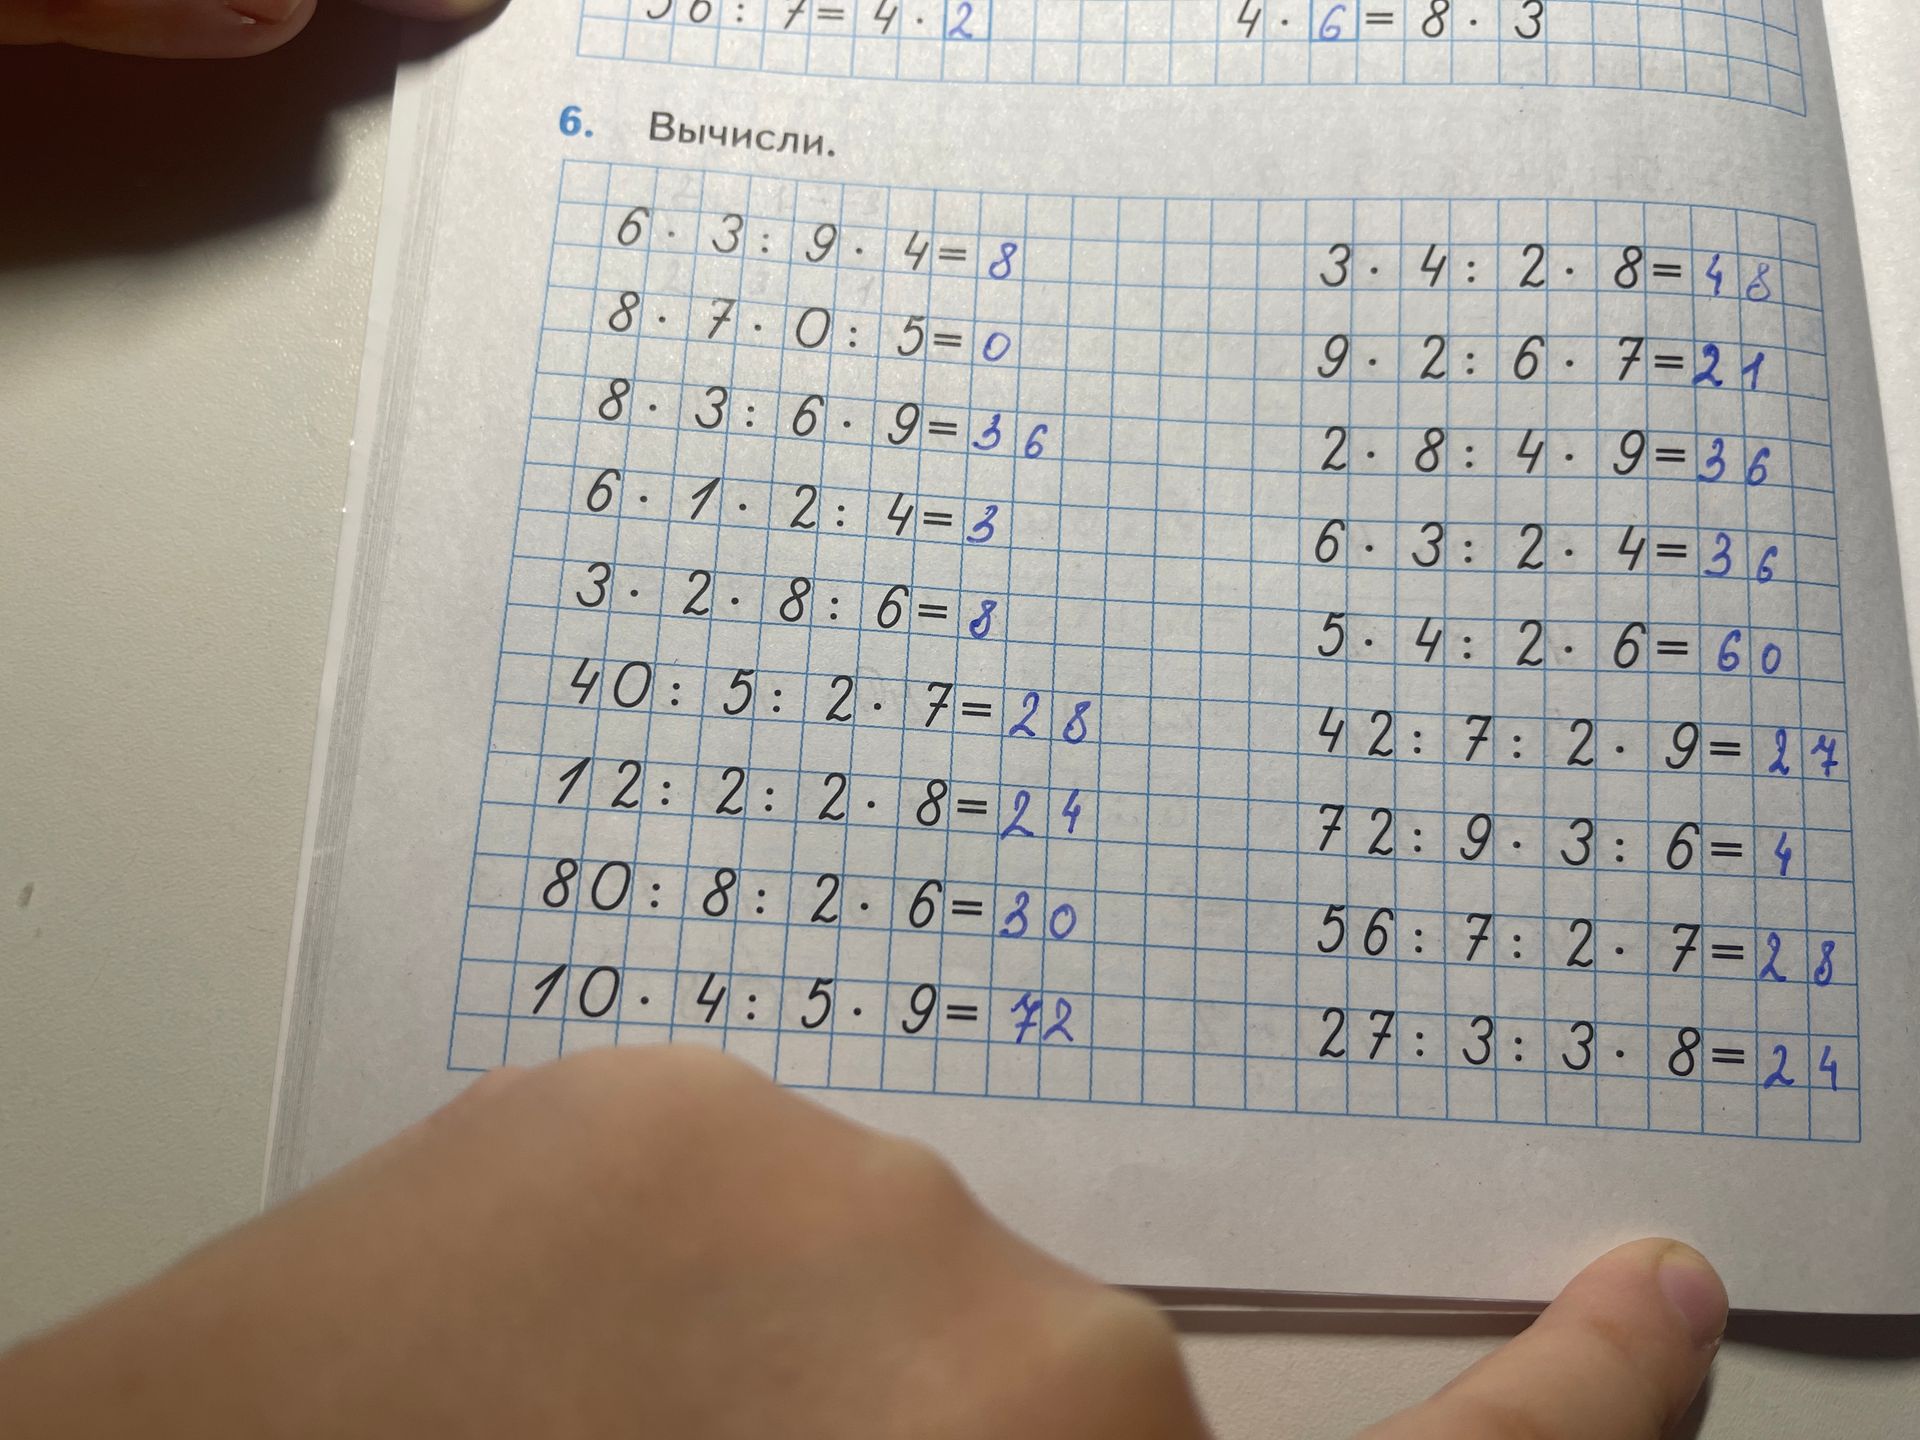 56 : 7 = 4 · 2
4 · 6 = 8 · 3
6. Вычисли.
6 · 3 : 9 · 4 = 8
8 · 7 · 0 : 5 = 0
8 · 3 : 6 · 9 = 36
6 · 1 · 2 : 4 = 3
3 · 2 · 8 : 6 = 8
40 : 5 : 2 · 7 = 28
12 : 2 : 2 · 8 = 24
80 : 8 : 2 · 6 = 30
10 · 4 : 5 · 9 = 72
3 · 4 : 2 · 8 = 48
9 · 2 : 6 · 7 = 21
2 · 8 : 4 · 9 = 36
6 · 3 : 2 · 4 = 36
5 · 4 : 2 · 6 = 60
42 : 7 : 2 · 9 = 27
72 : 9 · 3 : 6 = 4
56 : 7 : 2 · 7 = 28
27 : 3 : 3 · 8 = 24